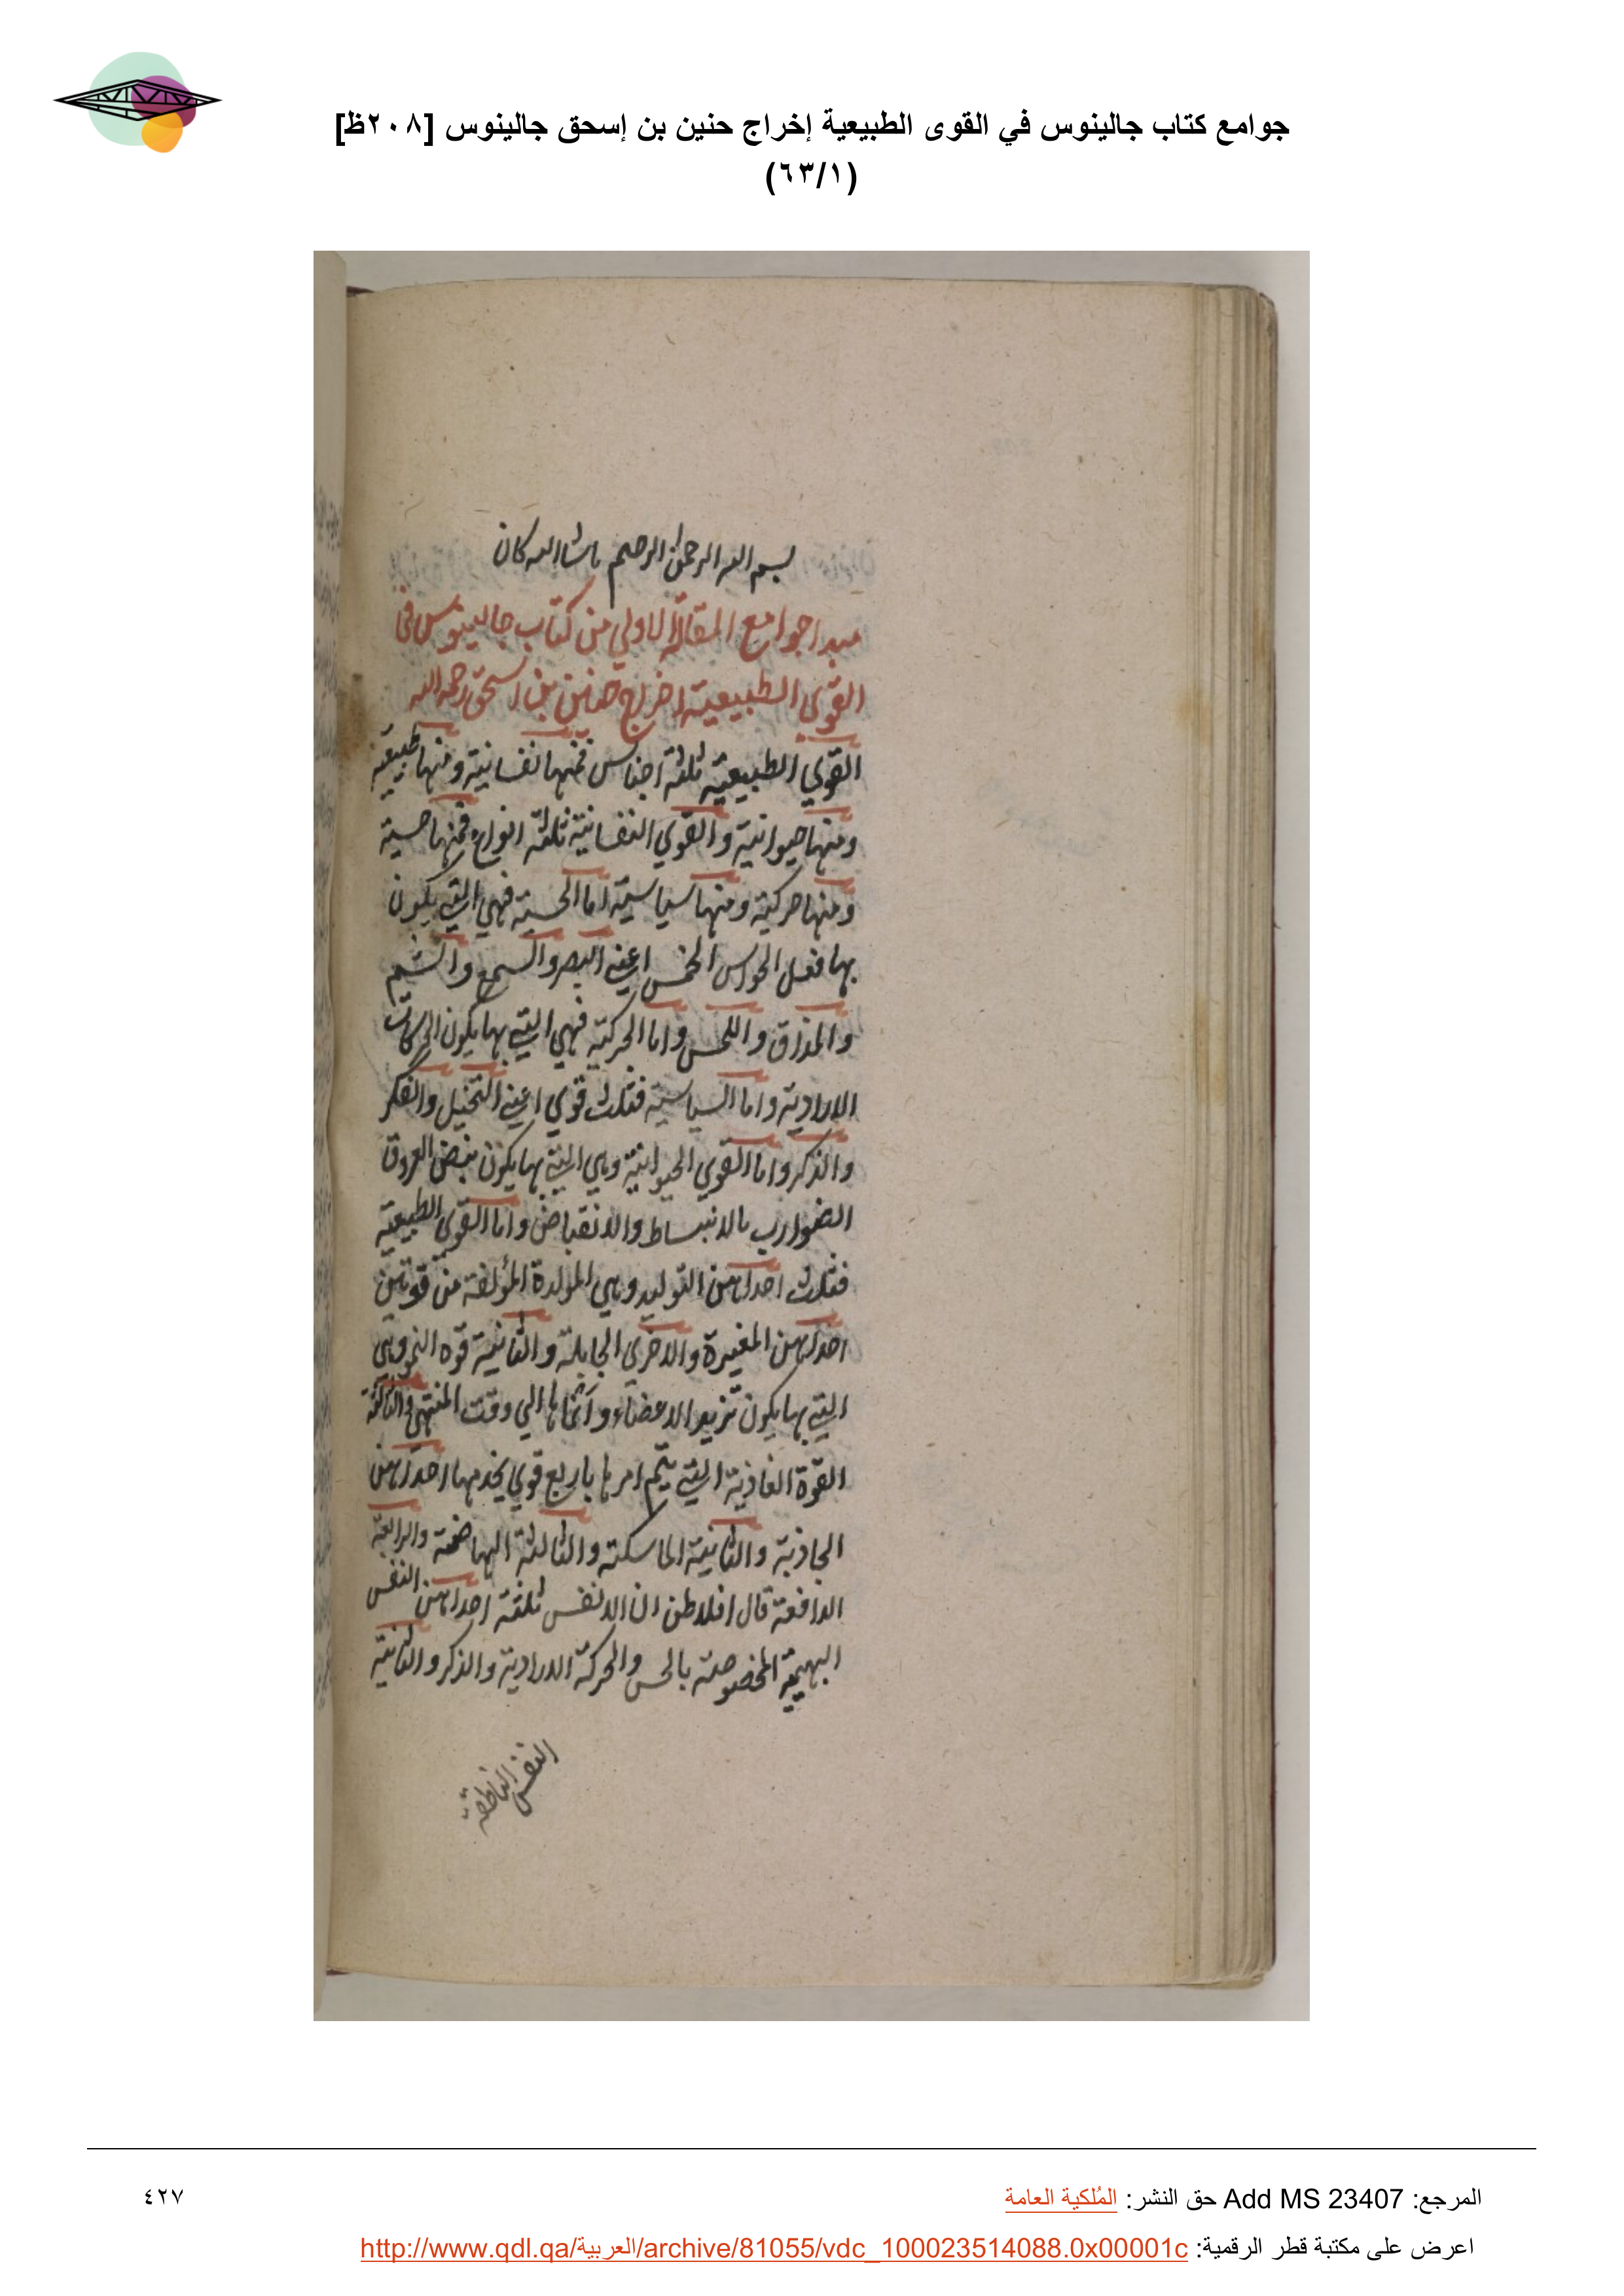 جوامع كتاب جالينوس في القوى الطبيعية إخراج حنين بن إسحق جالينوس [٢٠٨ظ]
(٦٣/١)
بسم الله الرحمن الرحيم ماشاالله كان
مبدا جوامع المقالة الاولي من كتاب جالينوس في
القوي الطبيعية اخراج حنين بن اسحق رحمه الله
القوي الطبيعية ثلثة اجناس فمنها نفسانية ومنها طبيعية
ومنها حيوانية والقوي النفسانية ثلثة انواع فمنها حسية
ومنها حركية ومنها سياسية اما الحسية فهي التي يكون
بها فعل الحواس الخمس اعني البصر والسمع والشم
والمذاق واللمس واما الحركية فهي التي بها يكون الحركات
الارادية واما السياسية فثلث قوي اعني التخيل والفكر
والذكر واما القوي الحيوانية وهي التي بها يكون نبض العروق
الضوارب بالانبساط والانقباض واما القوي الطبيعية
فثلث احداهن التوليد وهي المولدة المؤلفة من قوتين
احداهن المغيرة والاخري الجابلة والثانية قوه النمو وهي
التي بها يكون تزيد الاعضاء وانماها الي وقت المنتهي والثالثة
القوة الغاذية التي يتم امرها باربع قوي يخدمها احداهن
الجاذبة والثانية الماسكة والثالثة الهاضمة والرابعة
الدافعة قال افلاطن ان الانفس ثلثة احداهن النفس
البهيمية المخصوصة بالحس والحركة الارادية والذكر والثانية
النفس الناطقة
المرجع: Add MS 23407 حق النشر: المُلكية العامة
٤٢٧
اعرض على مكتبة قطر الرقمية: http://www.qdl.qa/العربية/archive/81055/vdc_100023514088.0x00001c